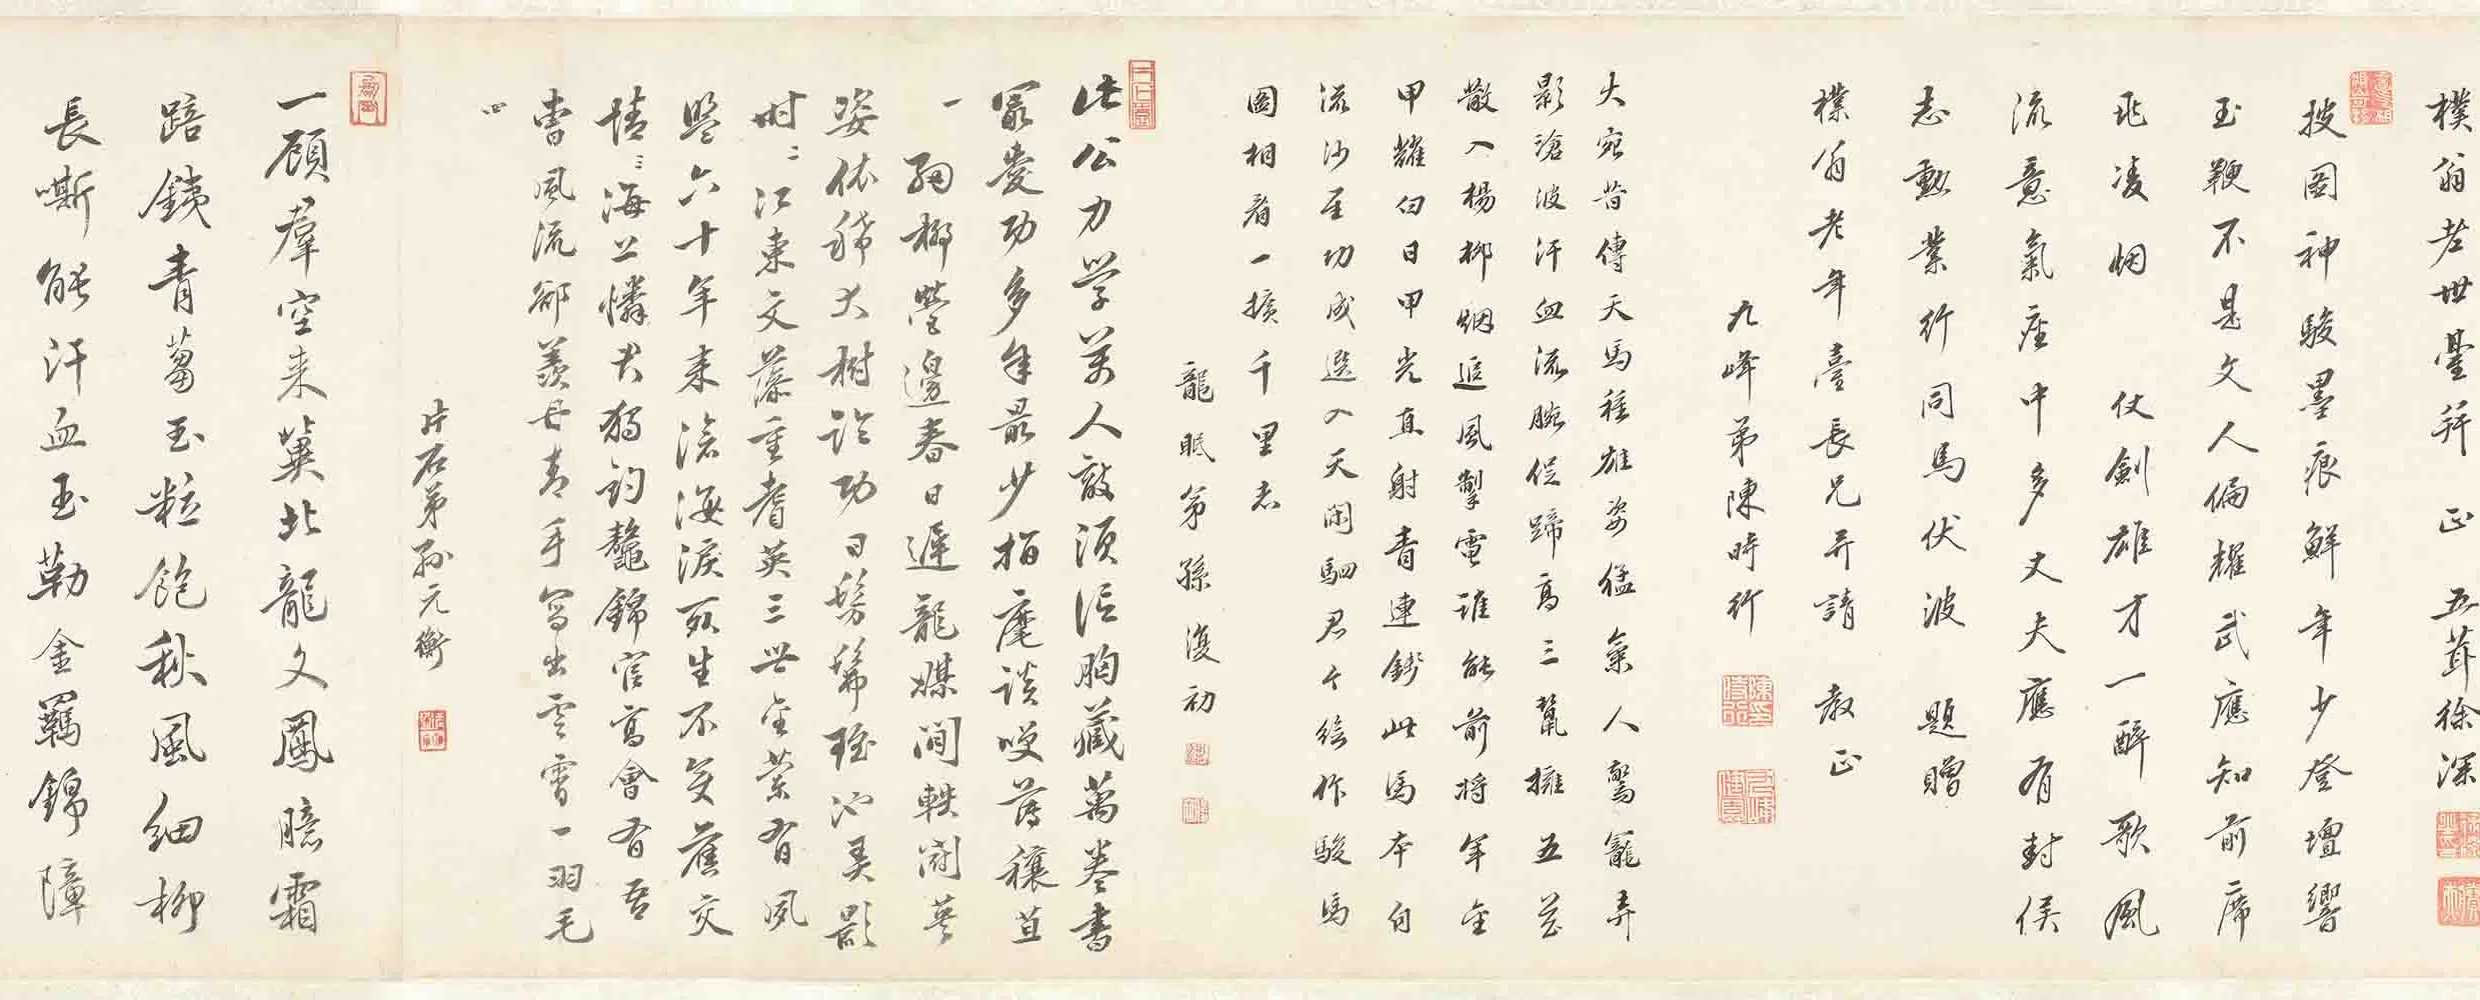 樸翁老世臺拜 正 五茸徐深
披圖神駿墨痕鮮年少登壇響
玉鞭不是文人偏耀武應知前席
飛凌烟 仗劍雄才一醉歌風
流意氣座中多丈夫應有封侯
志勳業行同馬伏波 題贈
樸翁老年臺長兄并請 教正
九峰弟陳時行
大宛昔傳天馬種雄姿猛氣人驚寵弄
影滄波汗血流腕促蹄高三鬉擁五花
散入楊柳烟追風掣電誰能前將軍金
甲耀白日甲光直射青連錢此馬本自
流沙至功成選入天閑駟君今繪作駿馬
圖相看一擴千里志
龍眠弟孫復初
此公力學萬人敵須信胸藏萬卷書
最愛功多年最少指麾談笑薄穰苴
一 細柳營邊春日遲龍媒閒軼闘英
姿依稀大樹論功日髣髴瑤池弄影
時二 江東文藻重耆英三世金蘭有夙
盟六十年來滄海淚死生不變舊交
情三 海上憐君獨釣鼇錦官高會有吾
曹風流卻羨丹青手寫出雲霄一羽毛
四
片石弟孫元衡
一顧群空来冀北龍文鳳臆霜
蹄鐵青芻玉粒飽秋風細柳
長嘶能汗血玉勒金羈錦障